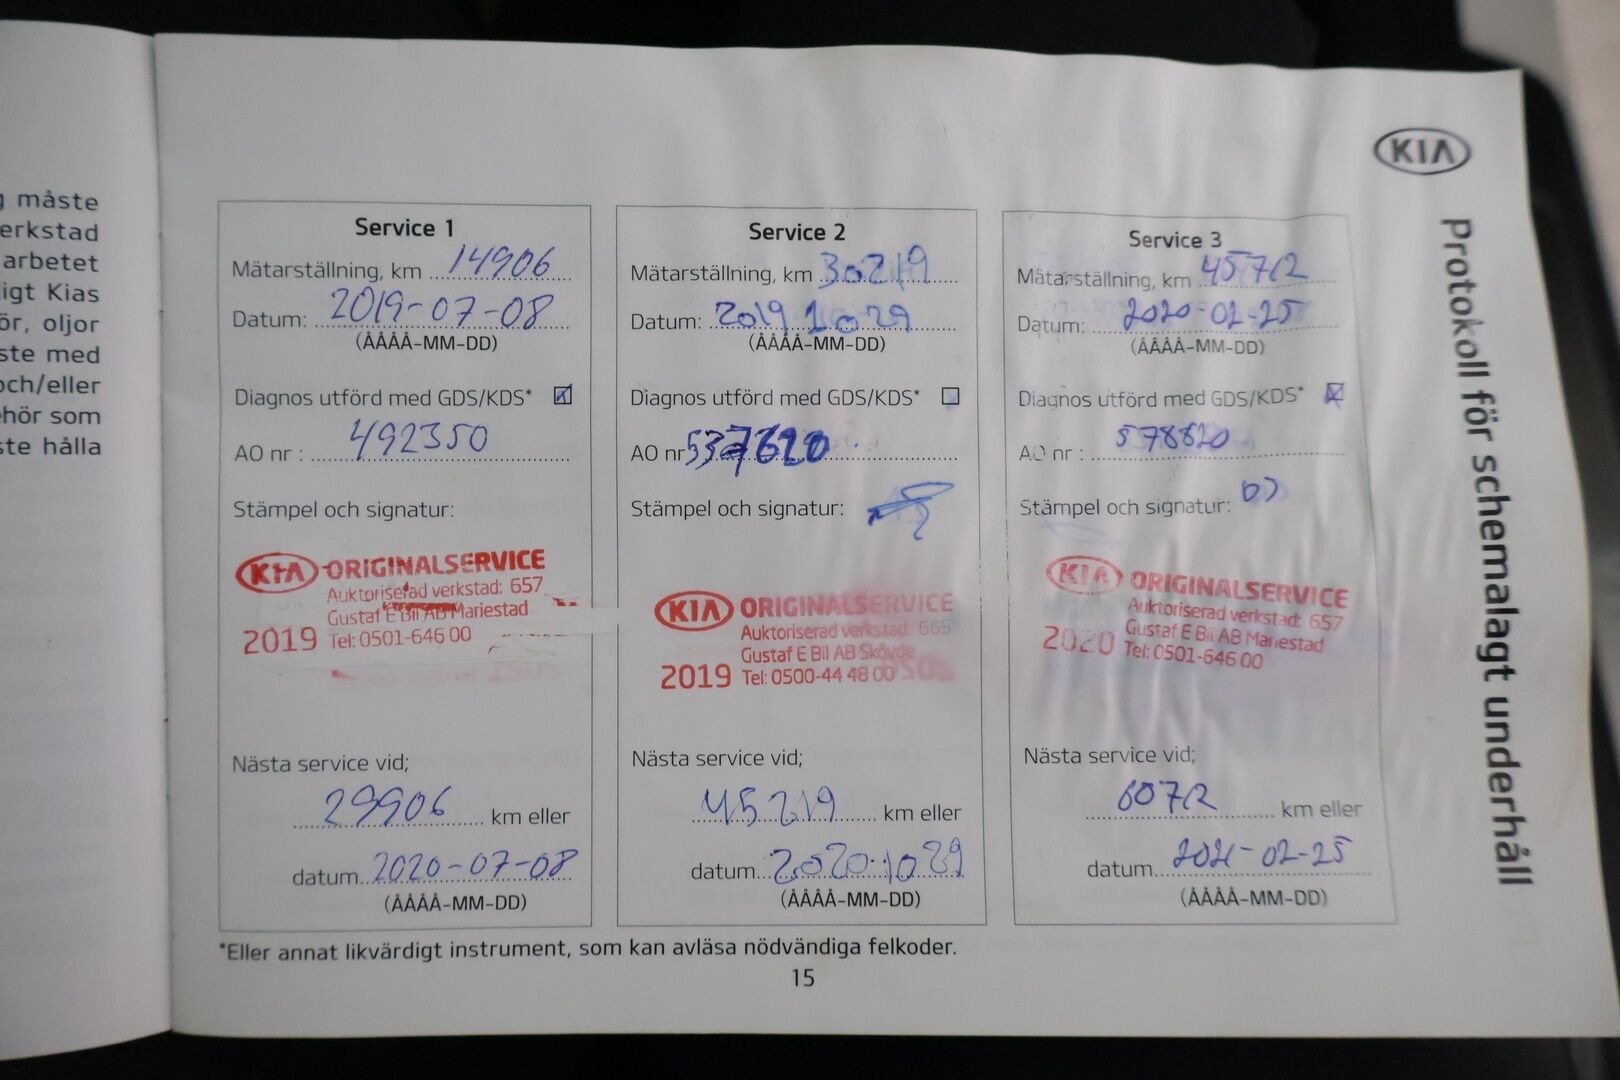 måste
erkstad
arbetet
igt Kias
ör, oljor
ste med
och/eller
ehör som
ste hålla
KIA
Protokoll för schemalagt underhåll
Service 1
Mätarställning, km 14906
Datum: 2019-07-08
(ÅÅÅÅ-MM-DD)
Diagnos utförd med GDS/KDS*
AO nr : 492350
Stämpel och signatur:
KIA ORIGINALSERVICE
Auktoriserad verkstad: 657
Gustaf E Bil AB Mariestad
2019 Tel: 0501-646 00
Nästa service vid;
29906 km eller
datum 2020-07-08
(ÅÅÅÅ-MM-DD)
Service 2
Mätarställning, km 30219
Datum: 2019 10 29
(ÅÅÅÅ-MM-DD)
Diagnos utförd med GDS/KDS*
AO nr 537620
Stämpel och signatur:
KIA ORIGINALSERVICE
Auktoriserad verkstad: 665
Gustaf E Bil AB Skövde
2019 Tel: 0500-44 48 00
Nästa service vid;
45219 km eller
datum 2020 10 29
(ÅÅÅÅ-MM-DD)
Service 3
Mätarställning, km 45712
Datum: 2020-02-25
(ÅÅÅÅ-MM-DD)
Diagnos utförd med GDS/KDS*
AO nr : 578820
Stämpel och signatur:
KIA ORIGINALSERVICE
Auktoriserad verkstad: 657
Gustaf E Bil AB Mariestad
2020 Tel: 0501-646 00
Nästa service vid;
60712 km eller
datum 2021-02-25
(ÅÅÅÅ-MM-DD)
*Eller annat likvärdigt instrument, som kan avläsa nödvändiga felkoder.
15